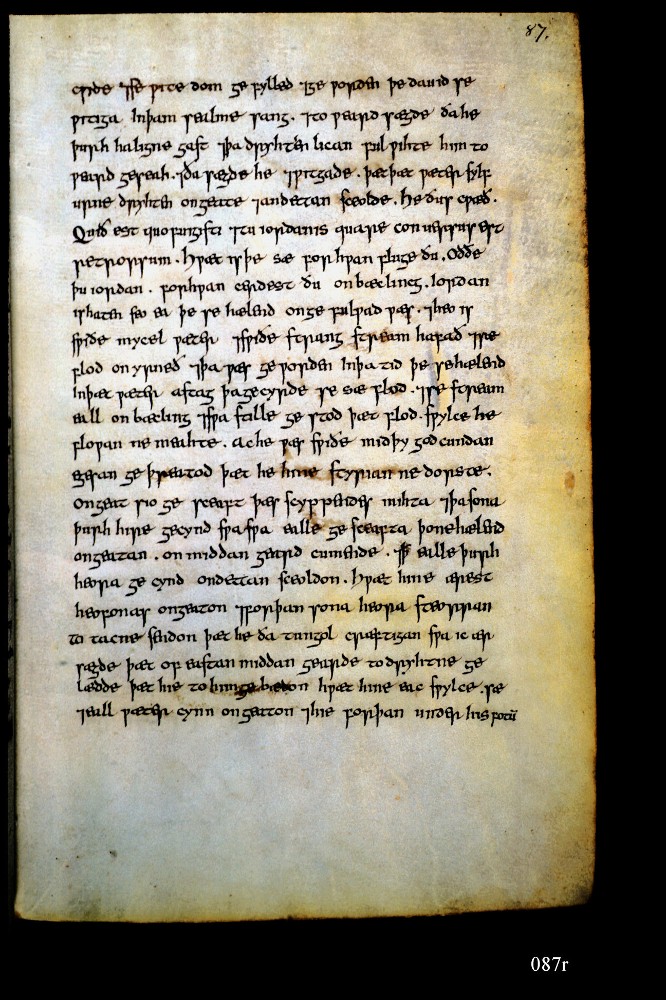 87.
cyðde ⁊ se wite dom ge fylled ⁊ ge worden þe dauid se
witiga In þam sealme sang. ⁊ to weard sægde ða he
þurh haligne gast ⁊ þa dryhten lican ful wihte him to
weard geseah. ⁊ ða sægde he ⁊ witgade. þæt þæt wæter sylf
urne dryhten ongeate ⁊ andettan sceolde. He ðus cwæð.
Quid est quo fugisti ⁊ tu iordanis quare conuersus est
retrorsum. Hwæt is þe sæ forhwan fluge ðu. Oððe
þu iordan. forhwan cerdest ðu on bæcling. Iordan
is haten seo ea þe se hælend on ge fulwad wæs. ⁊ heo is
swiðe mycel wæter ⁊ swiðe strang stream hafað ⁊ sæ
flod on yrneð ⁊ þa wæs ge worden In þa tid þe se hælend
In þæt wæter astag þa gecyrde se sæ flod. ⁊ se stream
eall on bæcling ⁊ swa stille ge stod þæt flod. swylce he
flowan ne meahte. Ac he wæs swiðe mid þy godcundan
egesan ge þreatod þæt he hine styrian ne dorste.
Ongeat sio ge sceaft þæs scyppendes mihta ⁊ þa sona
þurh hire gecynd swa swa ealle ge sceafta þone hælend
ongeatan. on middan geard cumende. ⁊ ealle þurh
heora ge cynd ondettan sceoldon. Hwæt hine ærest
heofonas ongeaton ⁊ forþan sona heora steorran
to tacne sendon þæt he ða tungol cræftigan swa ic ær
sægde þæt of eastan middan gearde to dryhtne ge
lædde þæt hie to him ge bædon hwæt hine eac swylce. sæ
⁊ eall wæter cynn ongeaton ⁊ hie forþan under his fotū
087r